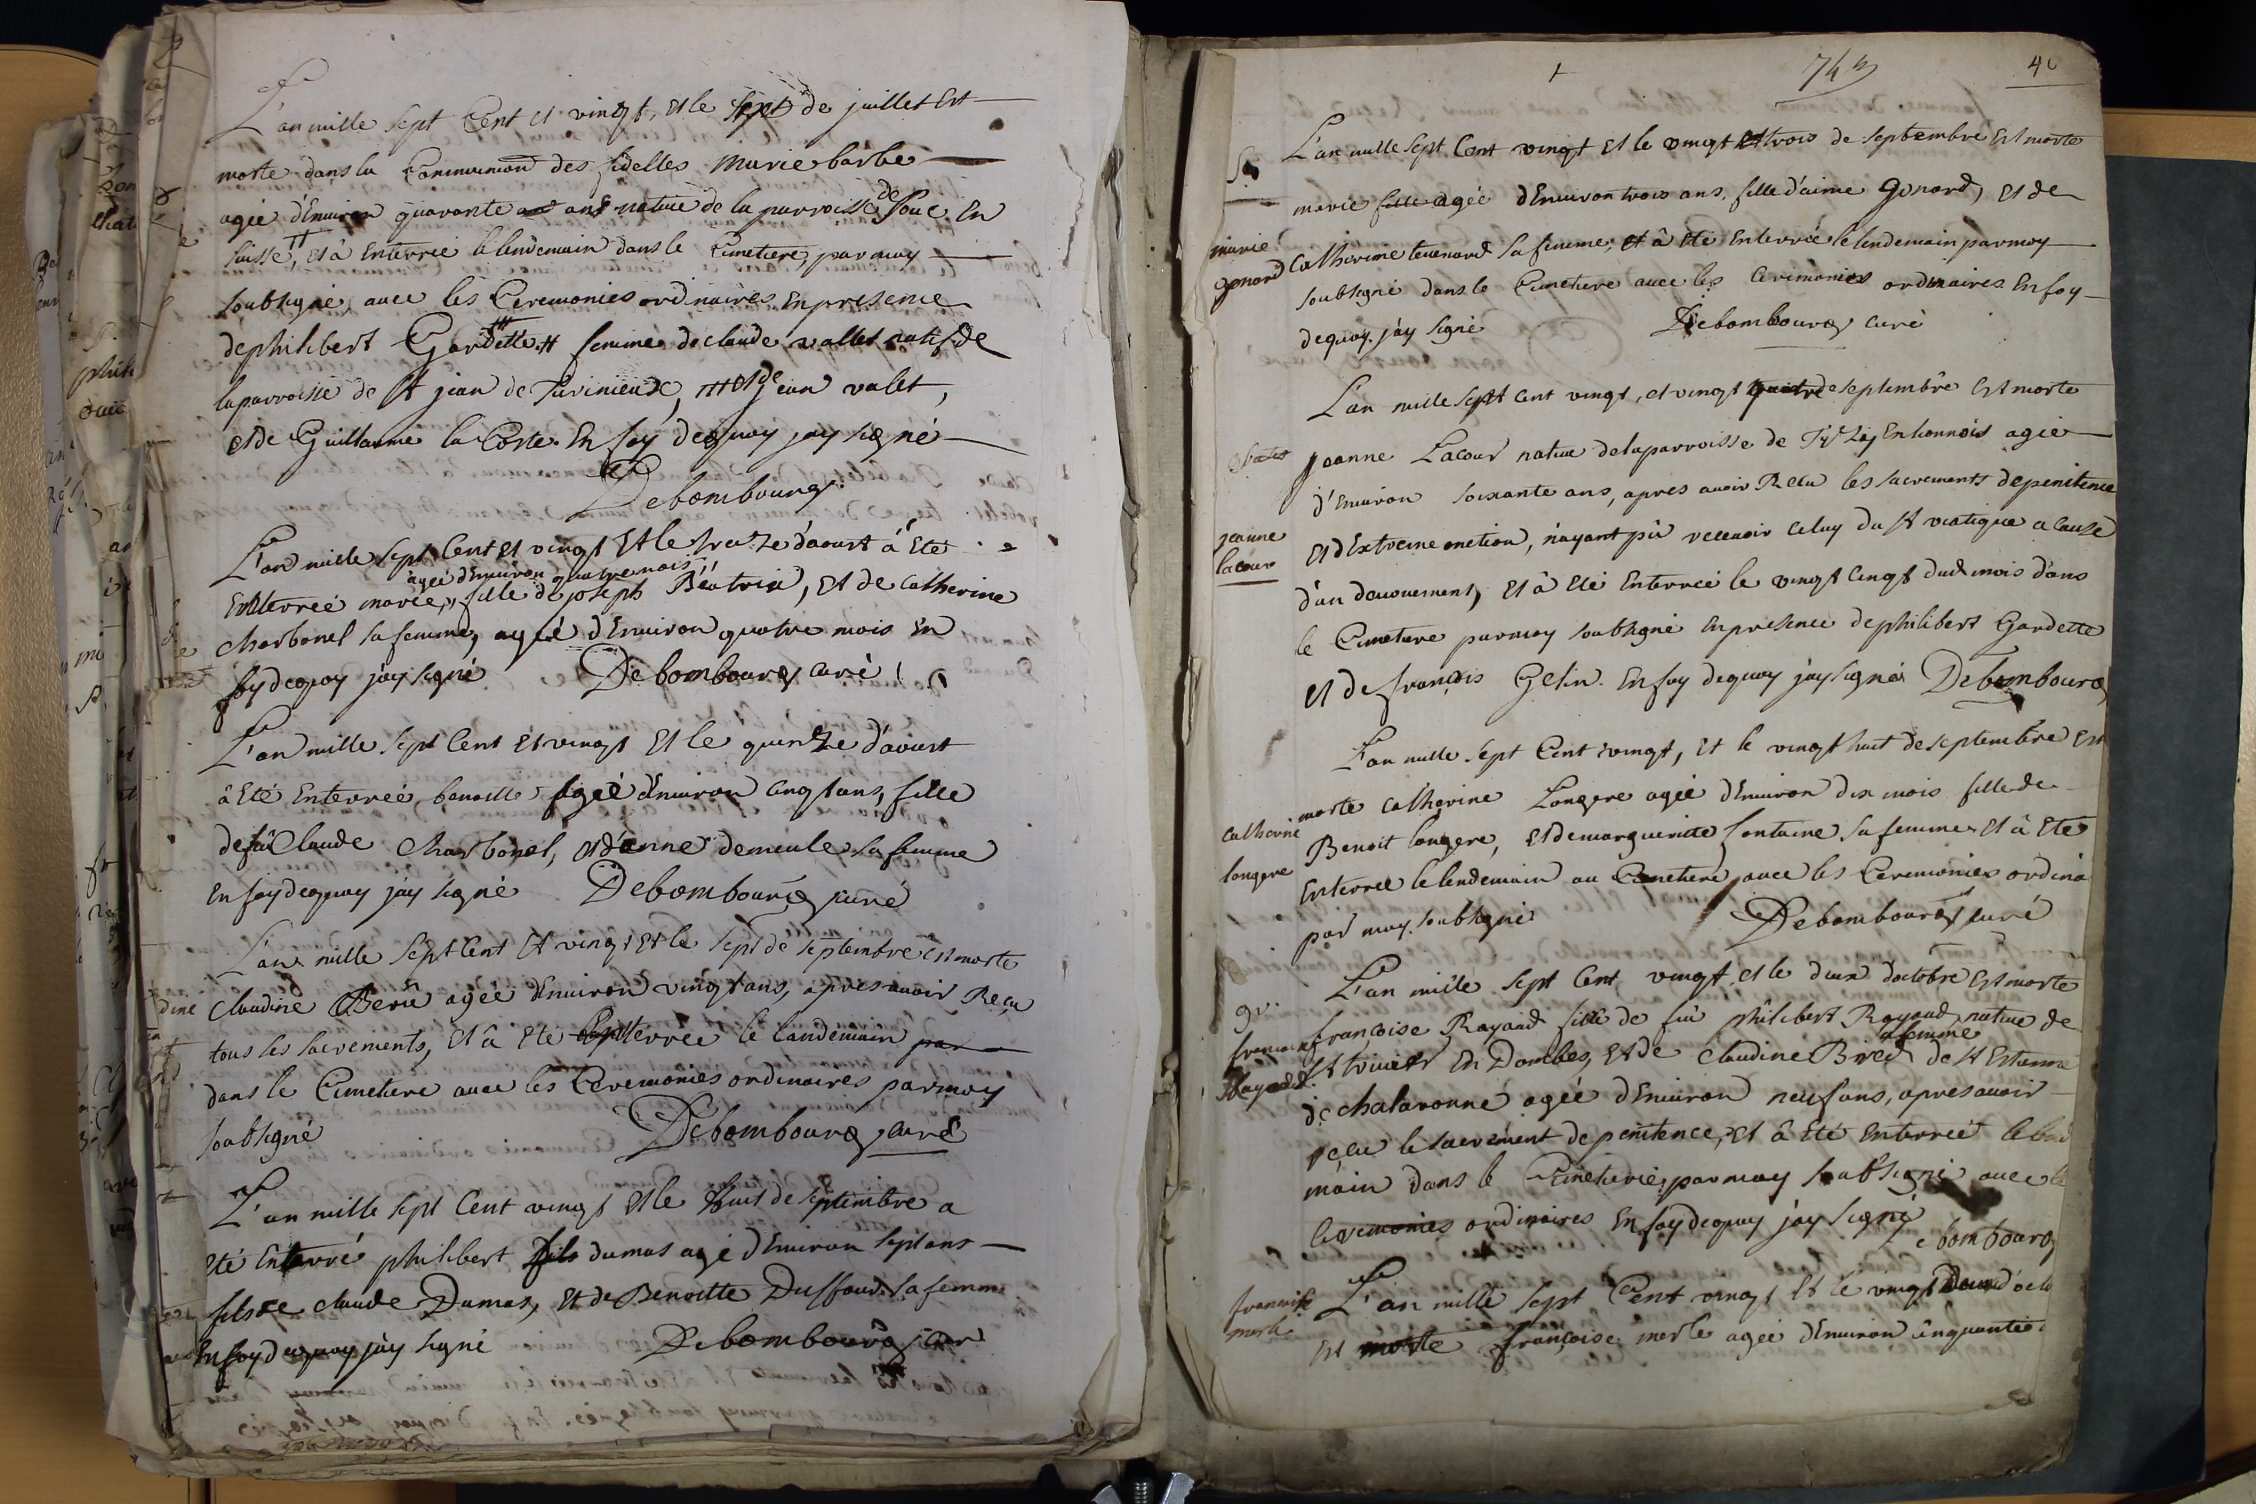 L'an mille sept Cent et vingt, et le sept de juillet est
morte dans la Communion des fidelles marie barbe
agée d'Environ quarante ans native de la parroisse de En
suisse, et à Enterrée le lendemain dans le Cimetiere, par moy
soubsigné, avec les Ceremonies ordinaires En presence
de philibert Gardette # femme de claude vallet natif de
la parroisse de St jean de Turinieux, et de jean valet,
et de Guillaume la Coste. En foy de quoy jay signé
Debombourg
L'an mille sept Cent et vingt Et le treize d'aoust à Eté
agée d'Environ quatre mois
Enterreé marie, fille de joseph Béatrix, Et de Catherine
charbonel sa femme, agée d'Environ quatre mois En
foy de quoy j'ay signé Debombourg curé
L'an mille sept Cent Et vingt Et le quinze d'aoust
à Eté Enterreé benoitte agée d'Environ cinq ans, fille
de fû Claude Charbonel, et d'anne demeule sa femme
En foy de quoy j'ay signé Debombourg curé
L'an mille sept Cent Et vingt et le sept de septembre est morte
dine
Claudine Berû ageé d'Environ vingt ans, apres avoir Reçu
tous les sacrements, et à eté Enterreé le landemain par
dans le Cimetiere avec les Ceremonies ordinaires par moy
soubsigné Debombourg curé
L'an mille sept Cent vingt Et le huit de septembre a
eté Enterré philibert fils dumas agé d'Environ sept ans
fils de claude Dumas, et de Benoitte Duffour sa femme
En foy de quoy j'ay signé Debombourg cur
74
L'an mille sept Cent vingt Et le vingt et trois de septembre Est morte
marie fille agée d'Environ trois ans, fille d'aime Gonard, et de
marie
gonard
Catherine tevenard sa femme, et à eté Enterreé le lendemain par moy
soubsigné dans le Cimetiere avec les Ceremonies ordinaires En foy
de quoy j'ay signé Debombourg curé
L'an mille sept cent vingt, et vingt quatre de septembre est morte
Jeanne Lacour native de la parroisse de En lionnois agée
d'Environ soixante ans, apres avoir Reçu les sacrements de penitence
jeanne
lacour
et d'Extreme onction, n'ayant pû recevoir celuy du St viatique a cause
d'un devouement, et à eté Enterreé le vingt Cinq dud. mois dans
le Cimetiere par moy soubsigné En presence de philibert Gardette
et de françois Gelin. En foy de quoy j'ay signé Debombourg
L'an mille sept Cent vingt, et le vingt huit de septembre est
morte Catherine Longere agée d'Environ dix mois fille de
catherine
longere
Benoit longere, et de marguerite fontaine sa femme et à eté
Enterreé le lendemain au Cimetiere avec les Ceremonies ordina
par moy soubsigné Debombourg curé
L'an mille sept Cent vingt et le deux d'octobre Est morte
francoise
Rayaud
françoise Rayaud fille de fû philibert Rayaud native de
sa femme
St trivier En Dombes, et de claudine de St Estienne
de chalaronne ageé d'Environ neuf ans, apres avoir
reçeu le sacrement de penitence, et à eté enterreé le lend
main dans le Cimetiere par moy soubsigné avec le
ceremonies ordinaires En foy de quoy j'ay signé
ebombourg
francoise
merle
L'an mille sept Cent vingt Et le vingt Deux d'octo
est morte françoise merle ageé d'Environ cinquante